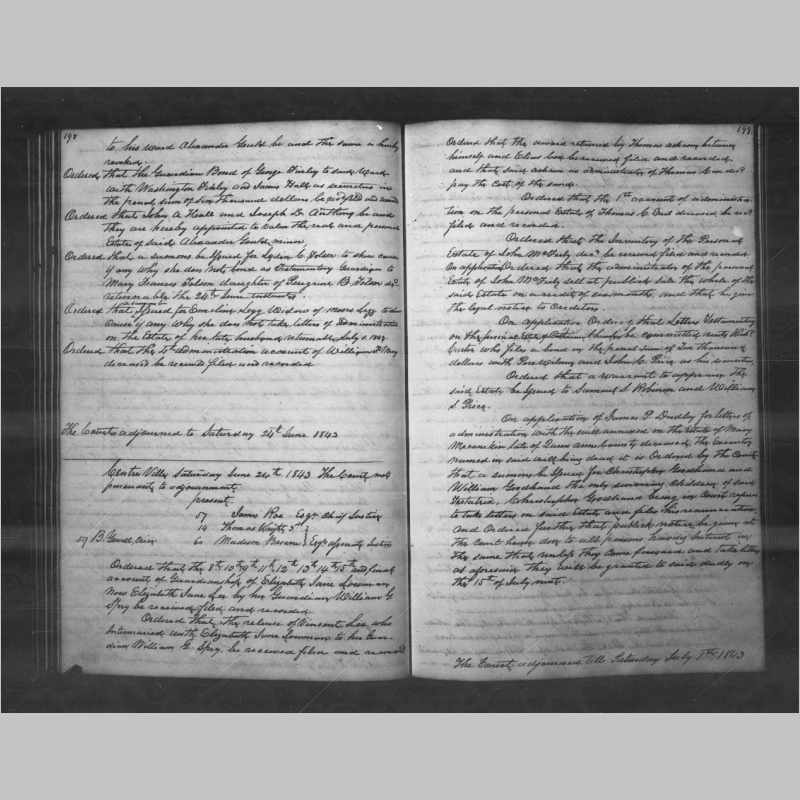 198
to his ward Alexander Gould be and the same is hereby
revoked.
Ordered that the Guardian Bond of George Finley to said Ward
with Washington Finley and James Hall as securities in
the penal sum of Six thousand dollars be filed and
Ordered that John A Hall and Joseph D. Anthony be and
they are hereby appointed to value the real and personal
Estate of said Alexander Gould minor.
Ordered that a summons be Issued for Lydia C. Tolson to shew cause
if any why she does not bond as Testamentary Guardian to
Mary Frances Tolson daughter of Peregrine B. Tolson decd
returnable the 24th June instant.
Ordered that Issued for Emeline Legg Widow of Moses Legg to shew
cause if any why she does not take letters of administration
on the Estate of her late husband returnable July 1 1843
Ordered that the 1st administration account of William
deceased be received filed and recorded
The Court adjourned to Saturday 24th June 1843
Centre Ville Saturday June 24th 1843 The Court met
pursuant to adjournment
present
57 James Roe Esqr Chief Justice
14 Thomas Wright 3d
59 B. Gould, Crier 60 Madison Brown Esqrs Associate Justices
Ordered that the 8th 9th 11th 12th 13th 14th 15th and final
account of Guardianship of Elizabeth Jane Lowman
now Elizabeth Jane Lee by her Guardian William G
Spry be received filed and recorded
Ordered that the release of Vincent Lee who
intermarried with Elizabeth Jane Lowman to his Guar-
dian William G. Spry, be received filed and recorded
199
Ordered that the award returned by Thomas Askew between
himself and Elias be received filed and recorded
and that said Askew as administrator of Thomas decd
pay the cost of the same.
Ordered that the 1st account of administra-
tion on the personal Estate of Thomas C. deceased be recd
filed and recorded.
Ordered that the Inventory of the Personal
Estate of John McFeely decd be received filed and recorded
On application Ordered that the administrator of the personal
Estate of John McFeely sell at publick sale the whole of the
said Estate on a credit of six months, and that he give
the legal notice to Creditors.
On application Ordered that Letters Testamentary
on the personal Estate of
who files a bond in the penal sum of Ten thousand
dollars with and John C. Price as his securities
Ordered that a warrant to appraise the
said Estate be Issued to Samuel S Robinson and William
S Price.
On application of James P. Dudley for letters of
administration with the will annexed on the Estate of Mary
late of Queen Anns County deceased, the Executor
named in said will being dead it is Ordered by the Court
that a summons be Issued for Christopher Goodhand and
William Goodhand the only surviving children of said
Testatrix, Christopher Goodhand being in Court refuses
to take letters on said Estate and files his renunciation
And Ordered further that publick notice be given at
the Court house door to all persons having interest in
the same that unless they come forward and take letters
as aforesaid they will be granted to said Dudley on
the 15th of July next.
The Court adjourned till Saturday July 1st 1843